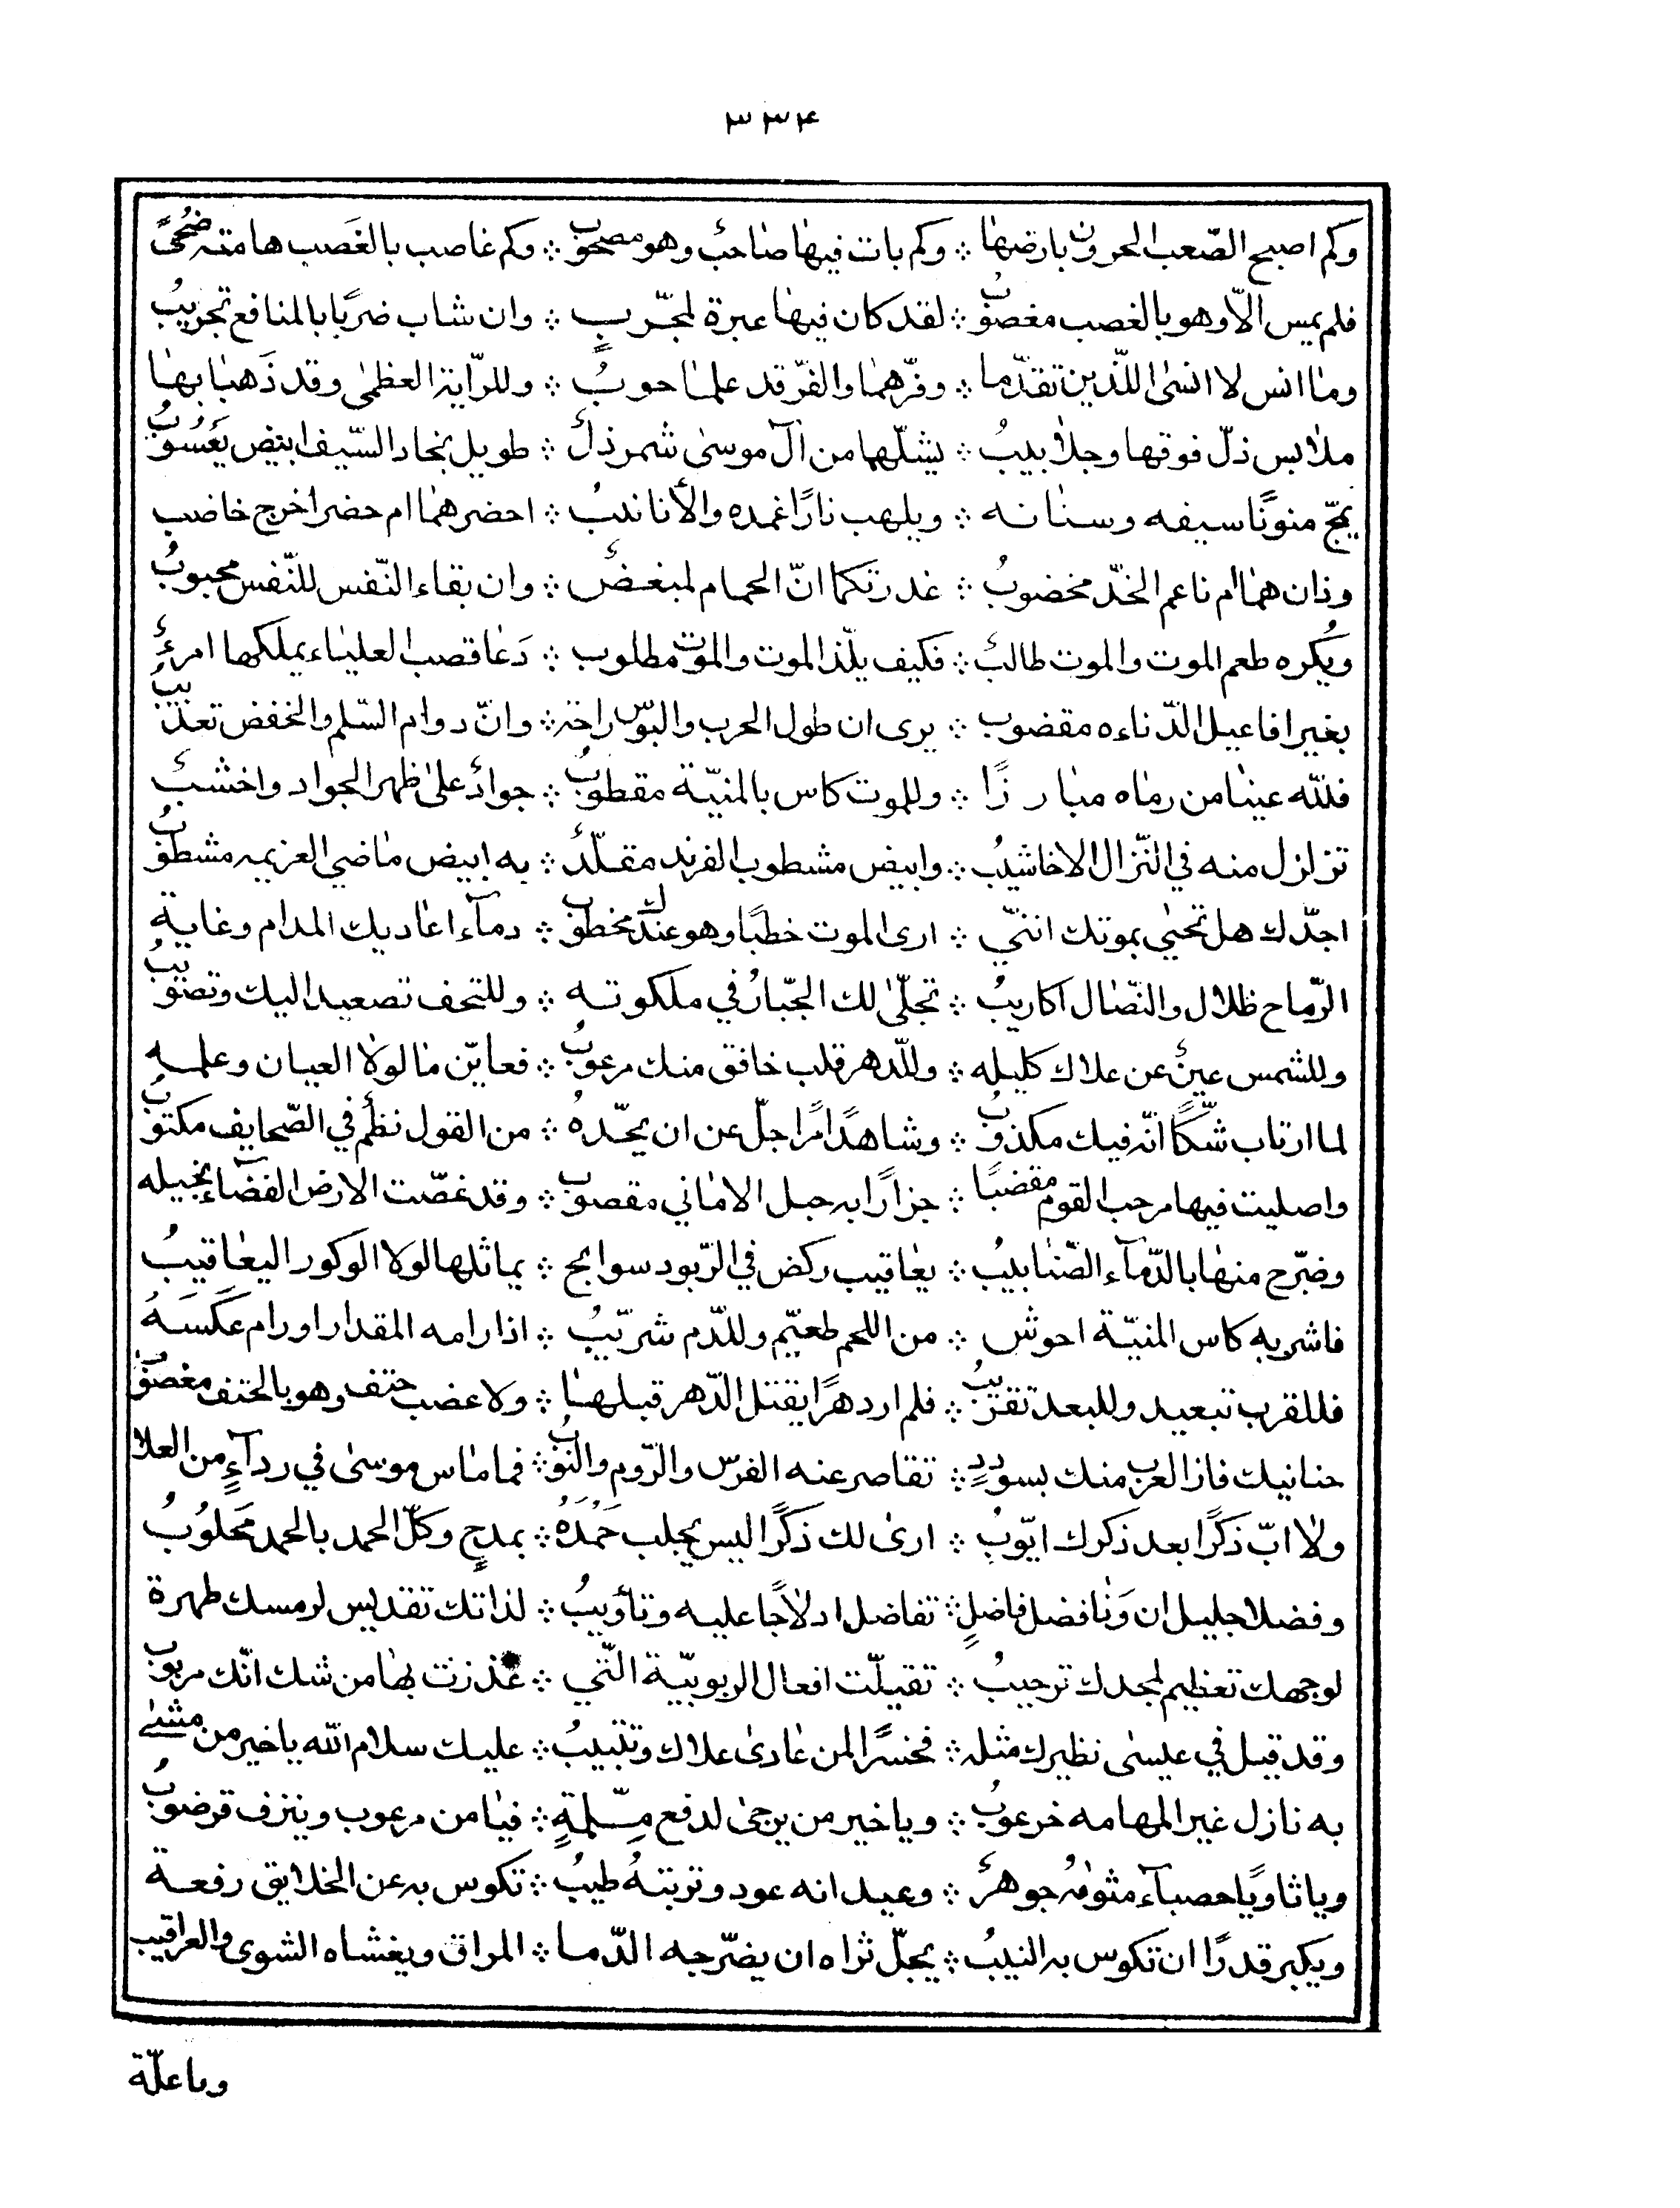 ٣٣۴
وكم اصبح الصّعب الحرون بارضها ∴ وكم بات فيها صاحبٌ وهو مصحوب ∴ وكم غاصب بالغَصب هامته ضُحىً
فلم يمس الّا وهو بالغصب مغصوبُ ∴ لقد كان فيها عبرة لمجّربٍ ∴ وان شاب ضرًبا بالمنافع تجريبُ
وما انس لا انسى اللّذين تقدّما ∴ وفرّهما والفرّ قد علما حوبُ ∴ وللرّاية العظمى وقد ذَهبا بها
ملابس ذلّ فوقها وجلابيبُ ∴ يشلّهما من آل موسى شمر ذلٌ ∴ طويل نجاد السّيف ابيض يَعْسُوبُ
يمجّ منونًا سيفه وسنانه ∴ ويلهب نارًا غمده والأنانيبُ ∴ احضرهما ام حضر اخرج خاضب
وذان هما ام ناعم الخدّ مخضوبُ ∴ عذرتكما انّ الحمام لمبغضٌ ∴ وان بقاء النّفس للنّفس محبوبُ
ويُكره طعم الموت والموت طالبٌ ∴ فكيف يلّذ الموت والموت مطلوب ∴ دَعا قصب العلياء يملكها امرءٌ
بغير افاعيل الدّناءه مقضوب ∴ يرى ان طول الحرب والبؤس راحة ∴ وانّ دوام السّلم والخفض تعذيبُ
فللّه عينا من رماه مبارزًا ∴ وللموت كاس بالمنيّة مقطوبُ ∴ جوادٌ على ظهر الجواد واخشبٌ
تزلزل منه في النّزال الاخاشيبُ ∴ وابيض مشطوب الفرند مقلّدٌ ∴ به ابيض ماضي العزيمه مشطوبُ
اجدّك هل تحيٰي بموتك انّني ∴ ارى الموت خطبًا وهو عندك مخطوب ∴ دمآء اعاديك المدام وغاية
الرّماح ظلال والنّصال اكاريبُ ∴ تجلّى لك الجبّارُ في ملكوته ∴ وللتحف تصعيد اليك وتصويبُ
وللشمس عينٌ عن علاك كليله ∴ وللّدهر قلب خافق منك مرعوبُ ∴ فعاين ما لولا العيان وعلمه
لما ارتاب شكًّا انّه فيك مكذوبُ ∴ وشاهد امرًا جلّ عن ان يحّدهُ ∴ من القول نظمٌ في الصّحايف مكتوبُ
واصليت فيها مرحب القوم مقضبًا ∴ جزارًا به حبل الاماني مقصوب ∴ وقد غصّت الارض الفضآء بخيله
وضرّح منها بالدّمآء الضّنابيبُ ∴ يعاقيب ركض في الرّبود سوابح ∴ يماثلها لولا الوكور اليعاقيبُ
فاشربه كاس المنيّة احوش ∴ من اللحم طعيّم وللدّم شريّبُ ∴ اذا رامه المقدار او رام عَكسَهُ
فللقرب تبعيد وللبعد تقريبُ ∴ فلم ار دهرًا يقتل الدّهر قبلها ∴ ولا عضب حتف وهو بالحتف معصوبُ
حنانيك فاز العرب منك بسوددٍ ∴ تقاصر عنه الفرس والرّوم والنوبُ ∴ فما ماس موسى في ردآءٍ من العلا
ولا ابّ ذكرًا بعد ذكرك ايّوبُ ∴ ارى لك ذكرًا ليس يجلب حَمْدَهُ ∴ بمدحٍ وكلّ الحمد بالحمد مَجلوُبُ
وفضلا جليل ان وَنا فضل فاضلٍ ∴ تفاضل ادلاجًا عليه وتأويبُ ∴ لذاتك تقديس لرمسك طهرة
لوجهك تعظيم لمجدك ترجيبُ ∴ تقيلّت افعال الربوبيّة الّتي ∴ عذرت بها من شك انّك مربوب
وقد قيل في عيسى نظيرك مثله ∴ فخسرًا لمن عادى علاك وتتبيبُ ∴ عليك سلام الله يا خير من مشى
به نازل غير المهامه خرعوبُ ∴ ويا خير من يرجى لدفع مسّلمةٍ ∴ فيا من مرعوب وينزف قرضوبُ
ويا ثاويًا حصبآء مثوٰىه جوهرٌ ∴ وعيدانه عود وتربتهُ طيبُ ∴ تكوس به عن الخلايق رفعة
ويكبر قدرًا ان تكوس به النيبُ ∴ يجلّ ثراه ان يضّرجه الدّما ∴ المراق ويغشاه الشوى والعراقيب
وياعلّة